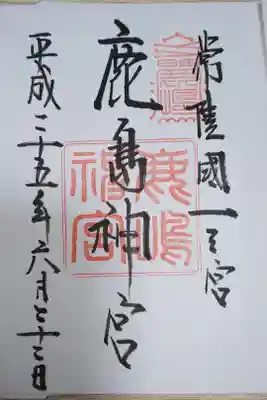 常陸國一之宮
鹿島神宮
鹿嶋神宮
平成二十五年六月二十三日